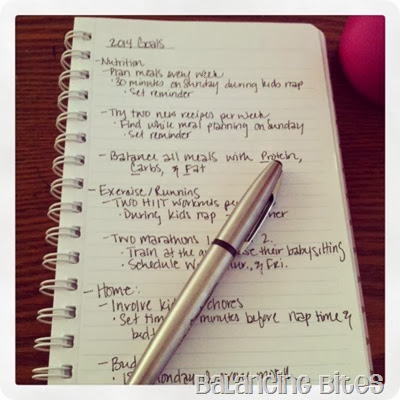 2014 Goals
- Nutrition
- Plan meals every week
· 30 minutes on Sunday during kids nap
· Set reminder
- Try two new recipes per week
· Find while meal planning on Sunday
· Set reminder
- Balance all meals with Protein,
Carbs, & Fat
- Exercise/Running
- Two HIIT workouts
· During kids nap
- Two marathons 2.
· Train at the their babysitting
· Schedule & Fri.
- Home:
- Involve chores
· Set minutes before nap time &
-
Balancing Bites